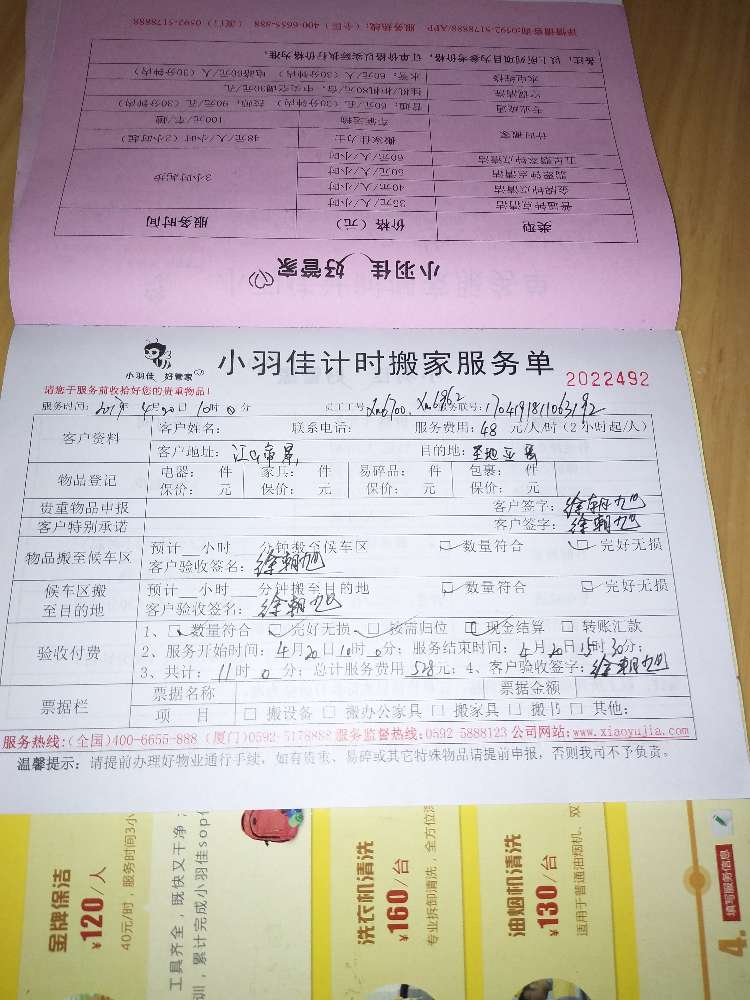 详情请咨询:0592-5178888/APP 服务热线：（全国）400-6655-888 （厦门）0592-5178888
备注：以上所列项目为参考价格，订单价格以实际执行价格为准。
水电维修 水管：60元/人（30分钟内） 电路60元/人（30分钟内）
空调清洗 挂机/柜机80元/台，中央空调30元/孔
专业疏通 普通：60元/人（30分钟内） 挖沟：90元/人（30分钟内）
计时搬家 车辆运输 100元/车/趟
搬家佳力士 48元/人/小时（2小时起）
五星级钟点清洁 60元/人/小时
翡翠钟点清洁 50元/人/小时
金牌钟点清洁 40元/人/小时 3小时起接
普通钟点清洁 35元/人/小时
类型 价格（元） 服务时间
小羽佳 好管家
小羽佳 好管家
小羽佳计时搬家服务单
2022492
请您于服务前收拾好您的贵重物品！
服务时间：2017年 4月20日 10时0分 员工工号：Xm6700、Xm6862 服务联号：170419181063192
客户资料
客户姓名： 联系电话： 服务费用：48元/人/时（2小时起/人）
客户地址：江头帝景 目的地：
物品登记
电器： 件 家具： 件 易碎品： 件 包裹： 件
保价： 元 保价： 元 保价： 元 保价： 元
贵重物品申报 客户签字：徐朝旭
客户特别承诺 客户签字：徐朝旭
物品搬至候车区
预计__小时__分钟搬至候车区 □ 数量符合 □ 完好无损
客户验收签名：徐朝旭
候车区搬至目的地
预计__小时__分钟搬至目的地 □ 数量符合 □ 完好无损
客户验收签名：徐朝旭
验收付费
1、□ 数量符合 □ 完好无损 □ 按需归位 □ 现金结算 □ 转账汇款
2、服务开始时间：4月20日10时0分；服务结束时间：4月20日15时30分；
3、共计：11时0分；总计服务费用528元；4、客户验收签字：徐朝旭
票据栏
票据名称 票据金额
项 目 □ 搬设备 □ 搬办公家具 □ 搬家具 □ 搬 □ 其他：
服务热线：(全国)400-6655-888 (厦门)0592-5178888 服务监督热线：0592-5888123 公司网站：www.xiaoyujia.com
温馨提示：请提前办理好物业通行手续，如有贵重、易碎或其它特殊物品请提前申报，否则我司不予负责。
金牌保洁
¥120/人
40元/时，服务时间3小
工具齐全，既快又干净
训，累计完成小羽佳sop
洗衣机清洗
¥160/台
专业拆卸清洗，全方位
油烟机清洗
¥130/台
适用于普通油烟机、双
4.
填写服务信息